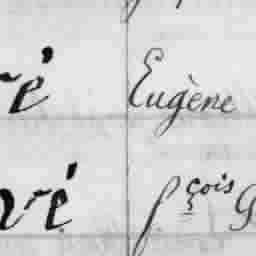 ré Eugène
vré fçois G